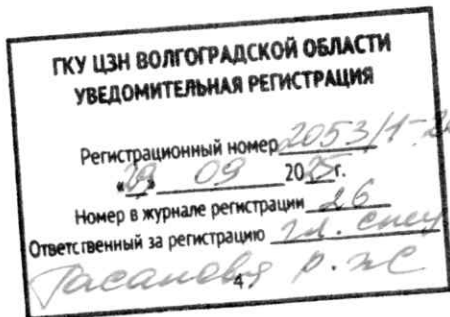 ГКУ ЦЗН ВОЛГОГРАДСКОЙ ОБЛАСТИ
УВЕДОМИТЕЛЬНАЯ РЕГИСТРАЦИЯ
Регистрационный номер 2053/1-2
«29» 09 2025г.
Номер в журнале регистрации 26
Ответственный за регистрацию гл. спец
4